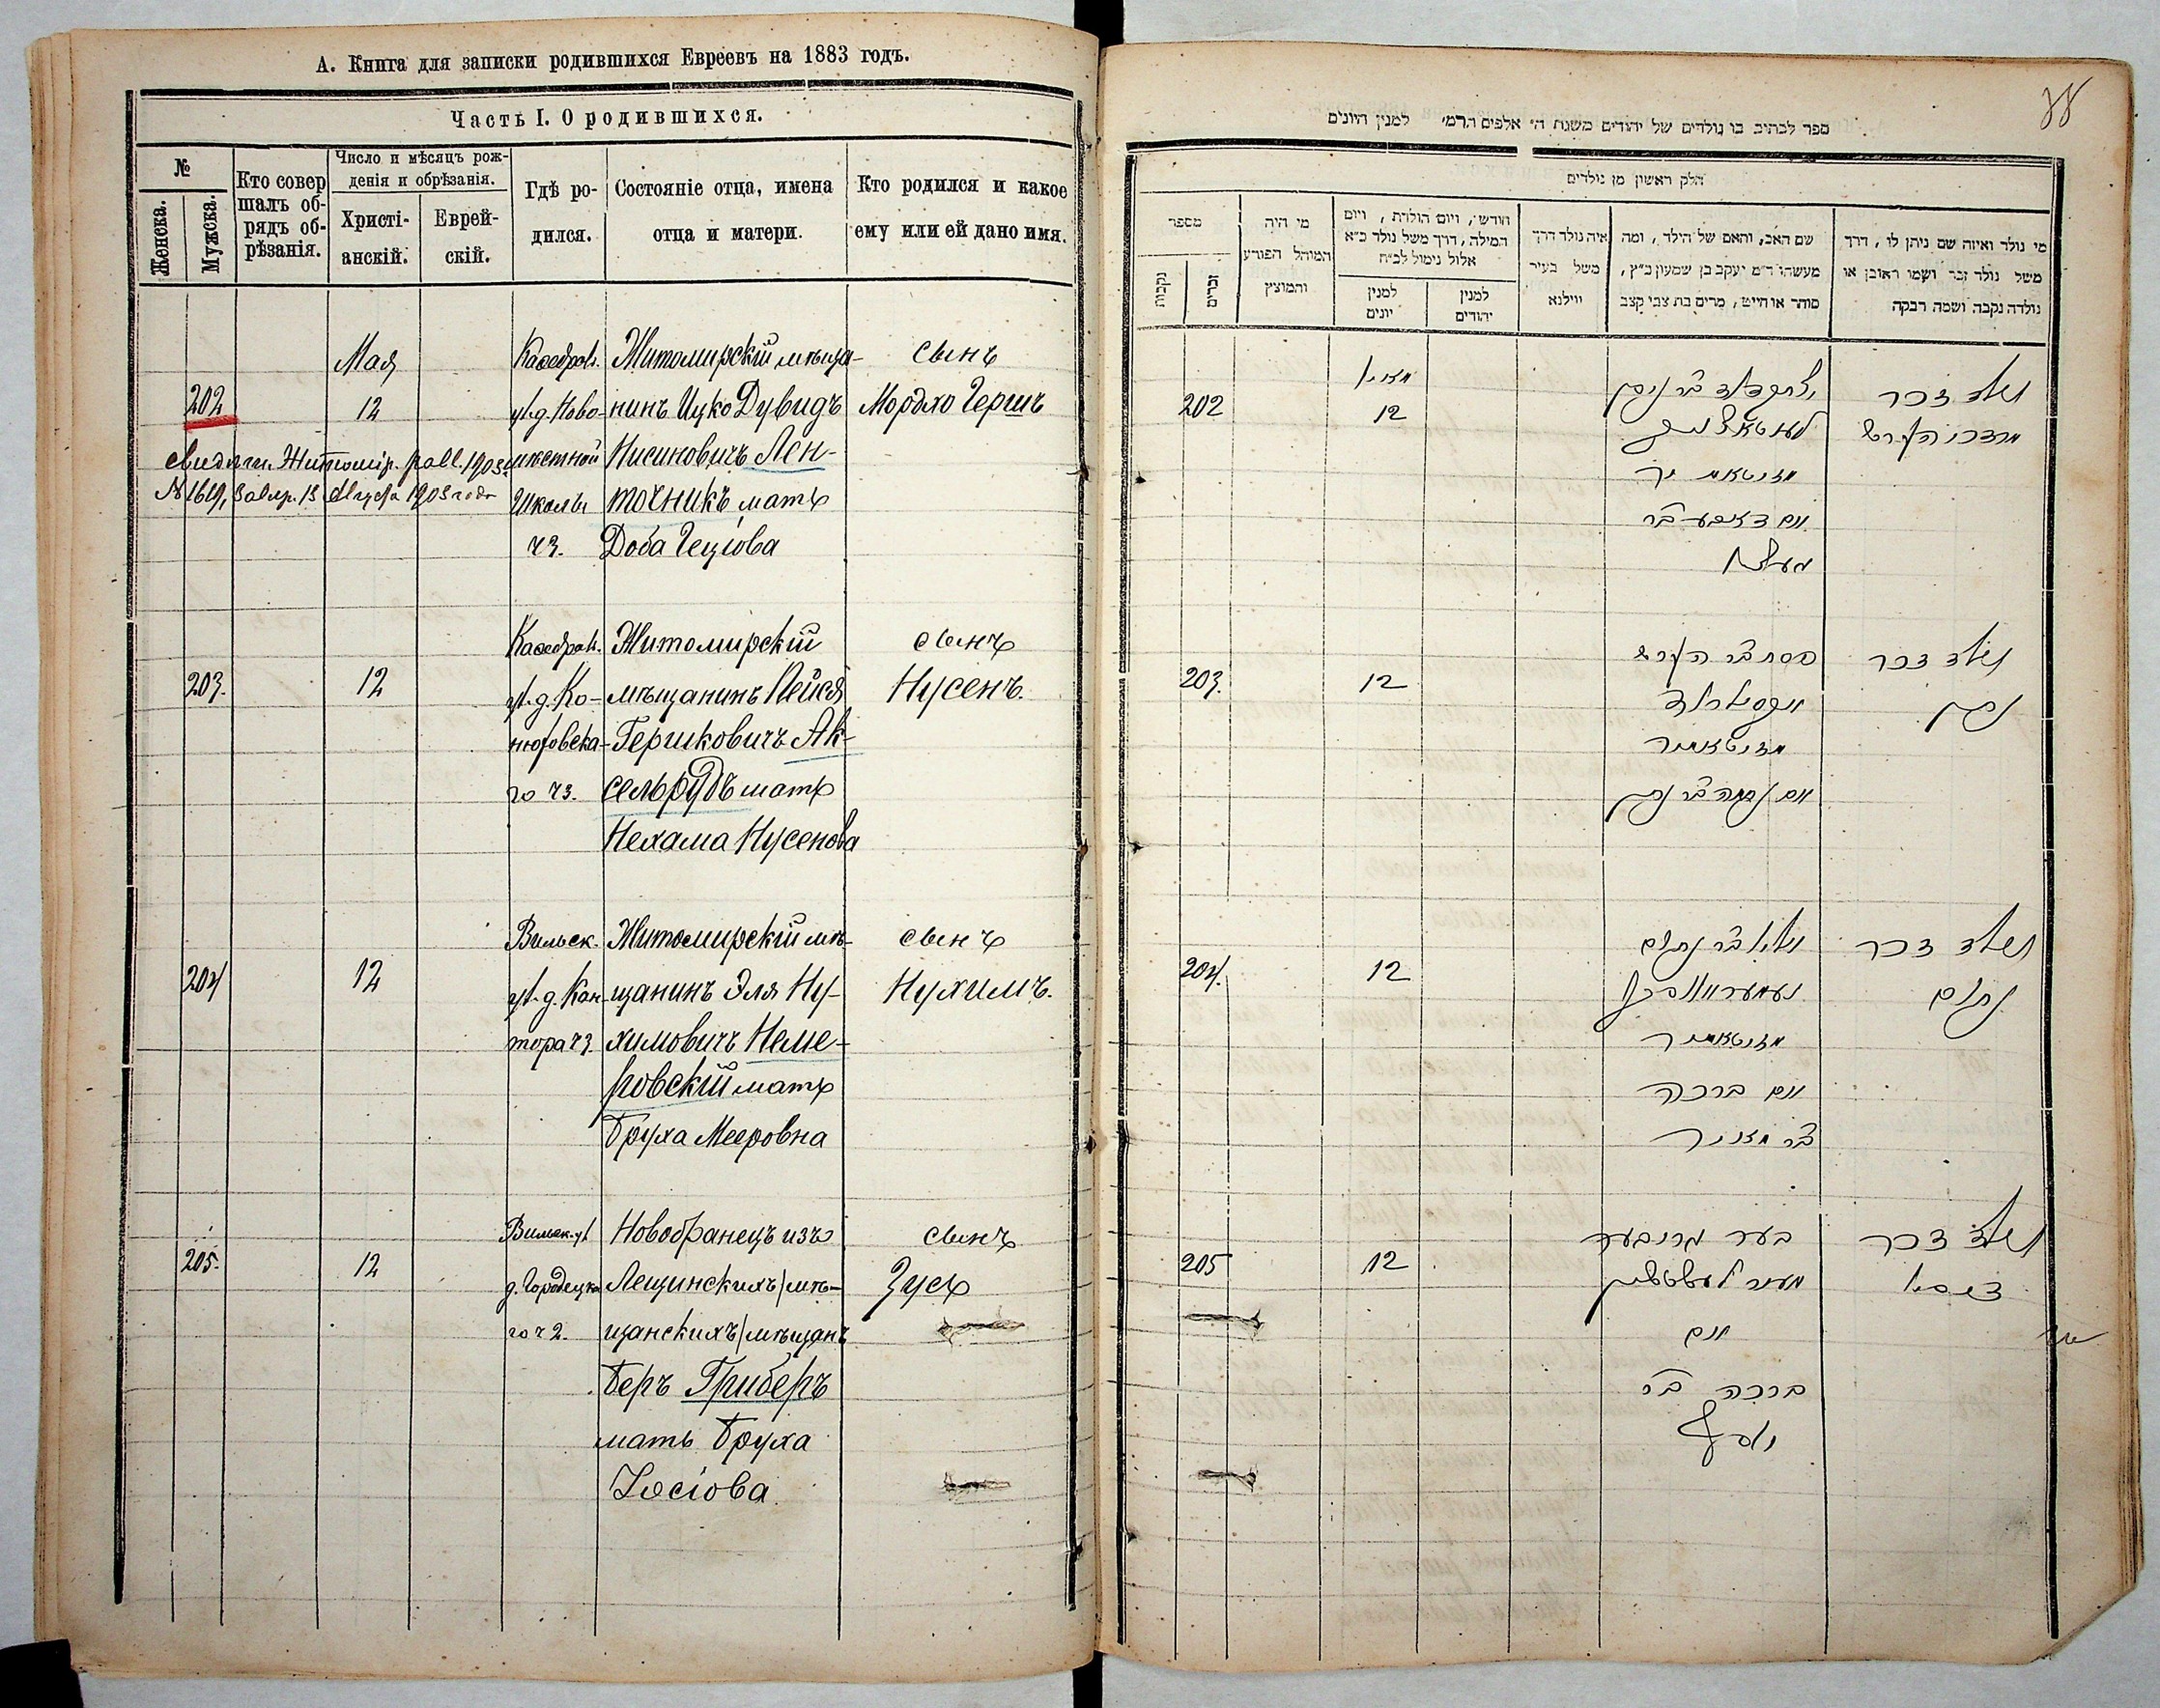 А. Книга для записки родившихся Евреевъ на 1883 годъ.
Часть I. О родившихся.
№
Женска.
Мужска.
Кто совер
шалъ об-
рядъ об-
рѣзанія.
Число и мѣсяцъ рож-
денія и обрѣзанія.
Христі-
анскій.
Еврей-
скій.
Гдѣ ро-
дился.
Состояніе отца, имена
отца и матери.
Кто родился и какое
ему или ей дано имя.
202
Мая
12
Каѳедрал.
ул. д. Ново-
мѣстной
Школы
ч 3.
Житомирскій мѣща-
нинъ Ицко Дувидъ
Нисиновичъ Лен-
точникъ мать
Доба Гецiова
сынъ
Мордко Герш
Свидѣт. Житомір. 1903
№ 1619, 13 1903 года
203.
12
Каѳедрал.
ул. д. Ко-
нюховска-
го ч 3.
Житомирскій
мѣщанинъ Пейся
Гершковичъ Ак-
сельрудъ мать
Нехама Нусенова
сынъ
Нусенъ.
204
12
Вильск.
ул. д. Кан-
тора ч 3
Житомирскій мѣ-
щанинъ Эля Ну-
химовичъ Неме-
ровскій мать
Бруха Меѣровна
сынъ
Нухимъ.
205.
12
Вильск. ул
д. Городецка
го ч 2.
Новобранецъ изъ
Лещинскихъ/мѣ-
щанскихъ/мѣщанъ
Беръ Гриберъ
мать Бруха
Іосіова
сынъ
Зусь
ספר לכתיב בו נולדים של יהודים משנת ה' אלפים הרמ' למנין היונים
חלק ראשון מן נולדים
מספר
נקבות
זכרים
מי היה
המוהל הפורע
והמוצץ
חודש, ויום הולדת, ויום
המילה, דרך משל נולד כ"א
אלול נימול לכ"ח
למנין
יונים
למנין
יהודים
איה נולד דרך
משל בעיר
ווילנא
שם האב, והאם של הילד, ומה
מעשהו ד"מ יעקב בן שמעון כ"ץ,
סוחר או חייט, מרים בת צבי קצב
מי נולד ואיזה שם ניתן לו, דרך
משל נולד זכר ושמו ראובן או
נולדה נקבה ושמה רבקה
202
מאיא
12
נולד זכר
מרדכי הערש
203.
12
פסח ב"ר הערש
אקסילראד
זיטאמיר
ואם נחמה ב"ר נסן
נולד זכר
נסן
204.
12
אליא ב"ר נחום
נעמעראווסקי
זיטאמיר
ואם ברכה
ב"ר מאיר
נולד זכר
נחום
205
12
בער גריבער
ואם
ברכה ב"ר
יוסף
נולד זכר
זוסיא